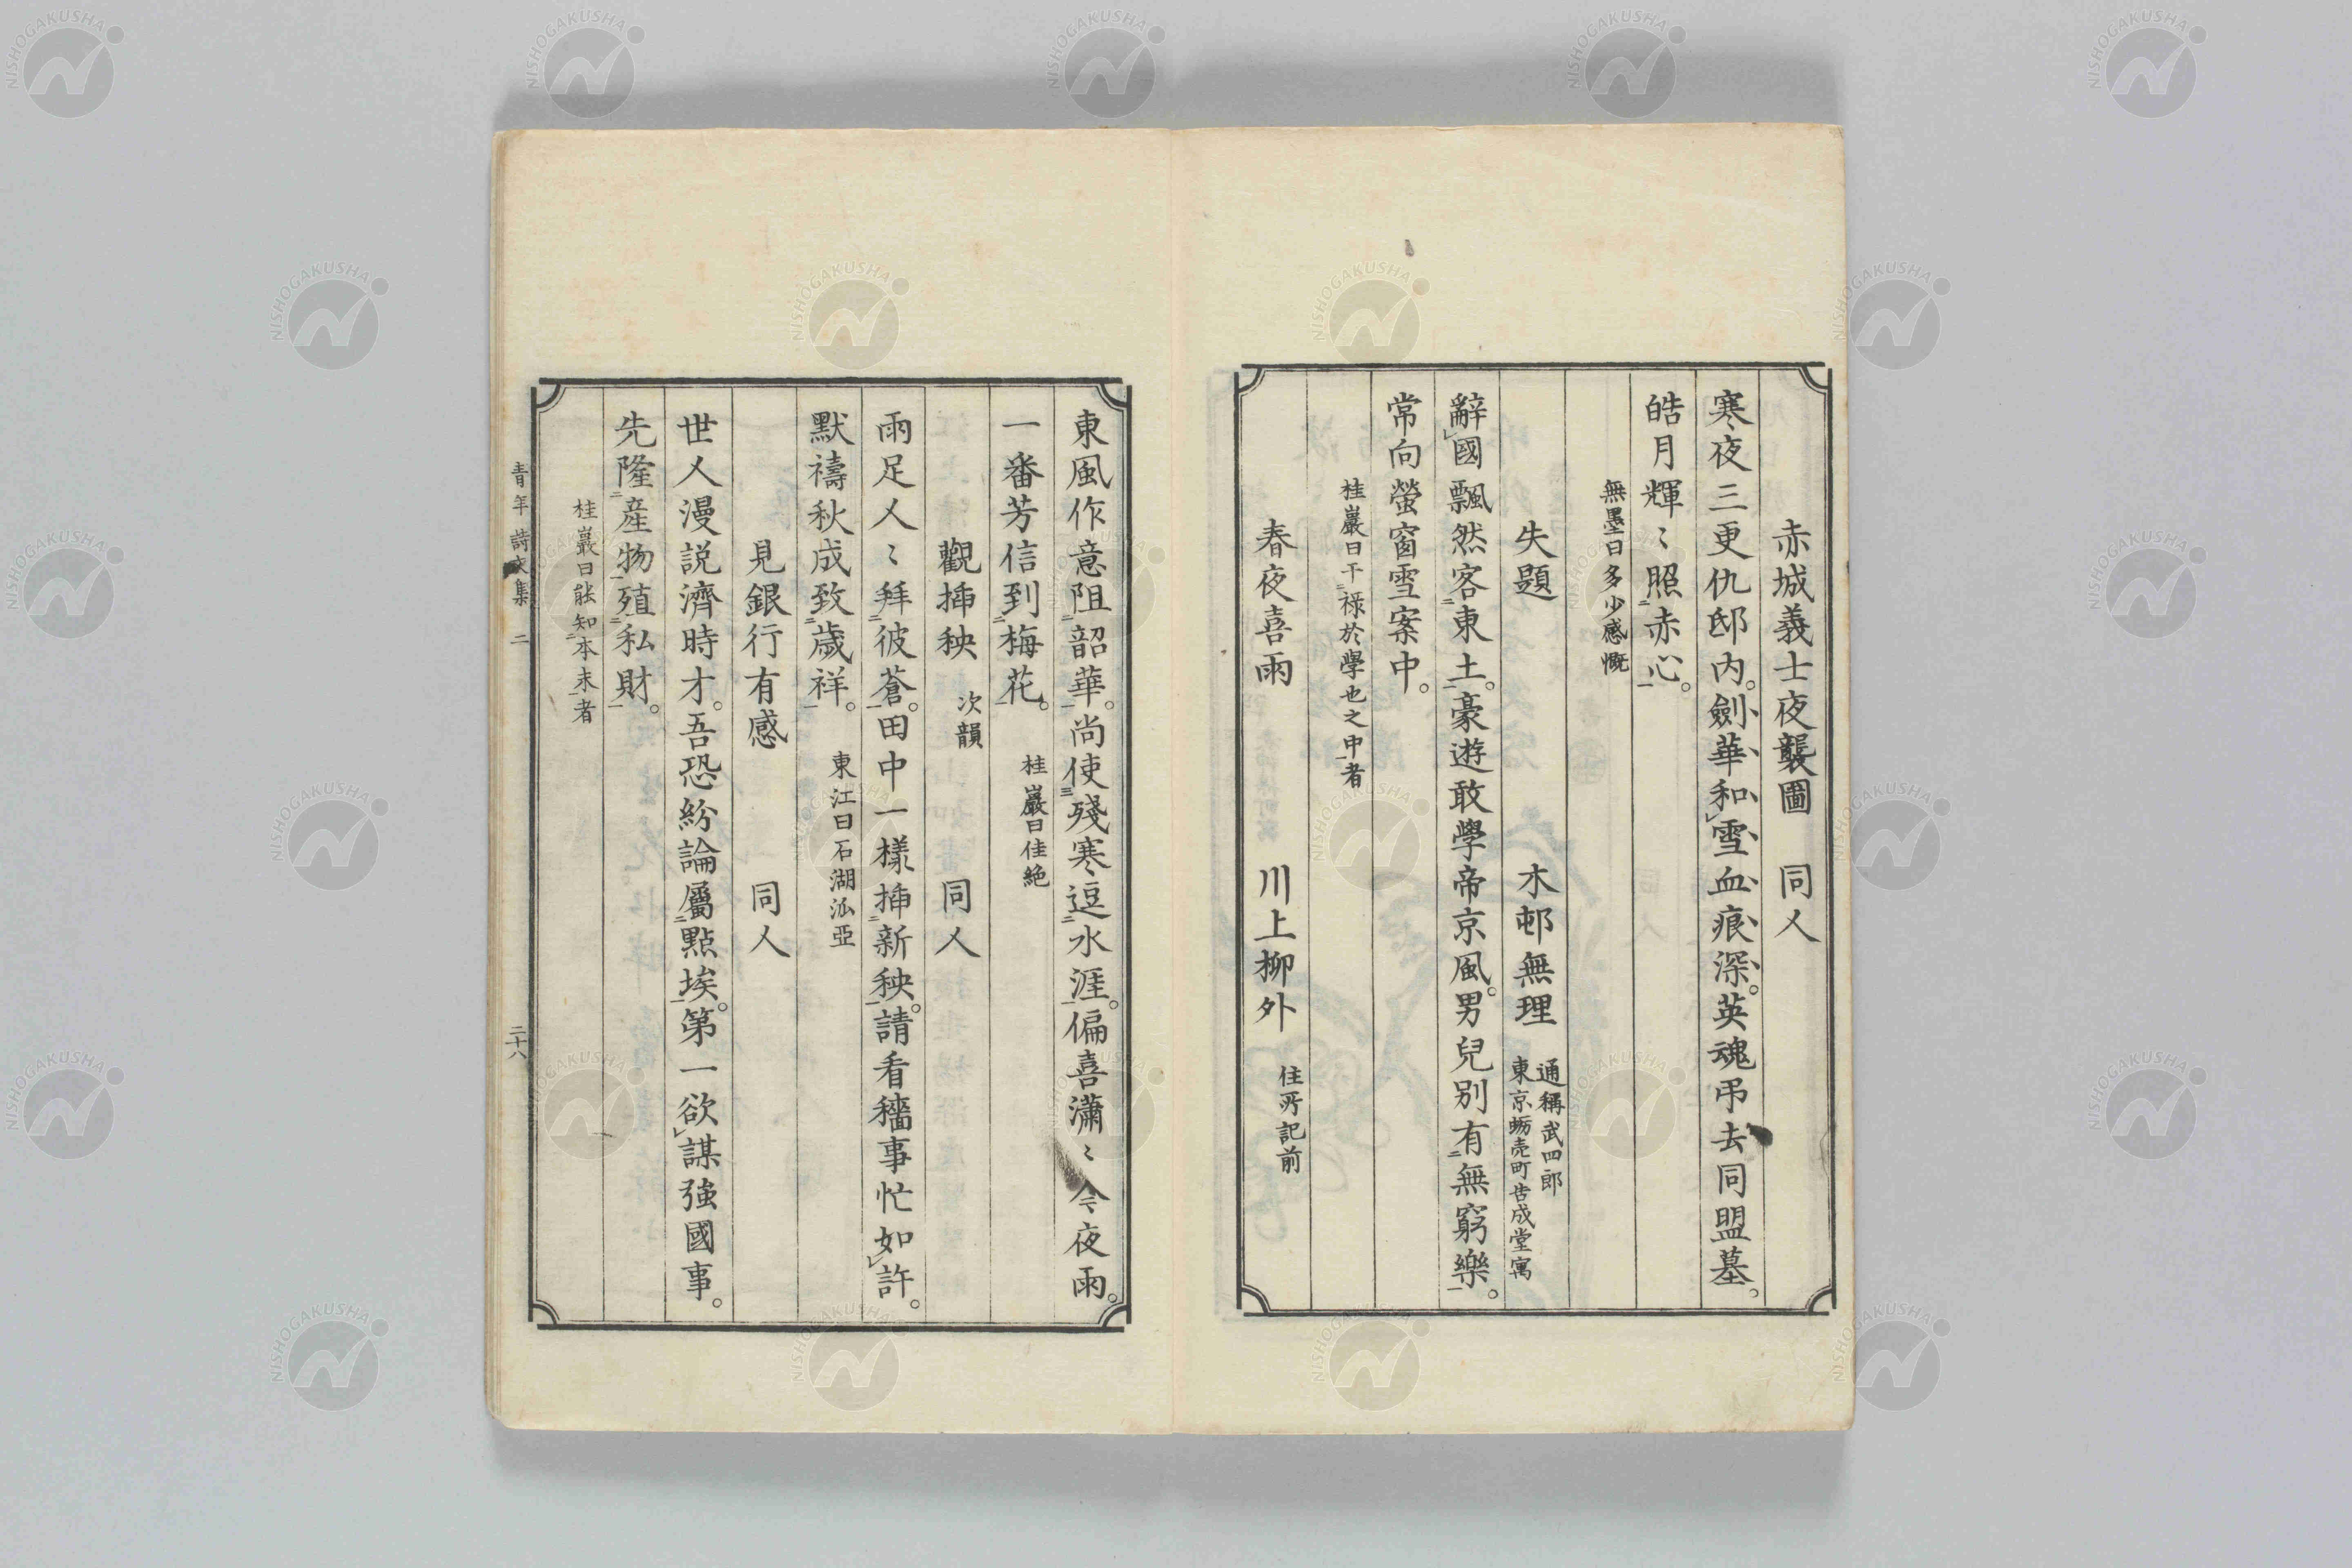 赤城義士夜襲圖 同人
寒夜三更仇邸内。劍華和雪血痕深。英魂弔去同盟墓。
皓月輝〻照赤心。
無墨曰多少感慨
失題 木邨無理 通稱武四郎 東京蛎売町告成堂寓
辭國飄然客東土。豪遊敢學帝京風。男兒別有無窮樂。
常向螢窗雪案中。
桂巖曰干祿於學也之中者
春夜喜雨 川上柳外 住所記前
東風作意阻韶華。尚使殘寒逗水涯。偏喜瀟〻今夜雨。
一番芳信到梅花。 桂巖曰佳絶
觀揷秧 次韻 同人
雨足人〻拜彼蒼。田中一樣揷新秧。請看穡事忙如許。
默禱秋成致歲祥。 東江曰石湖流亞
見銀行有感 同人
世人漫説濟時才。吾恐紛論屬點埃。第一欲謀強國事。
先隆産物殖私財。
桂巖曰能知本末者
青年詩文集 二 二十八
NISHOGAKUSHA